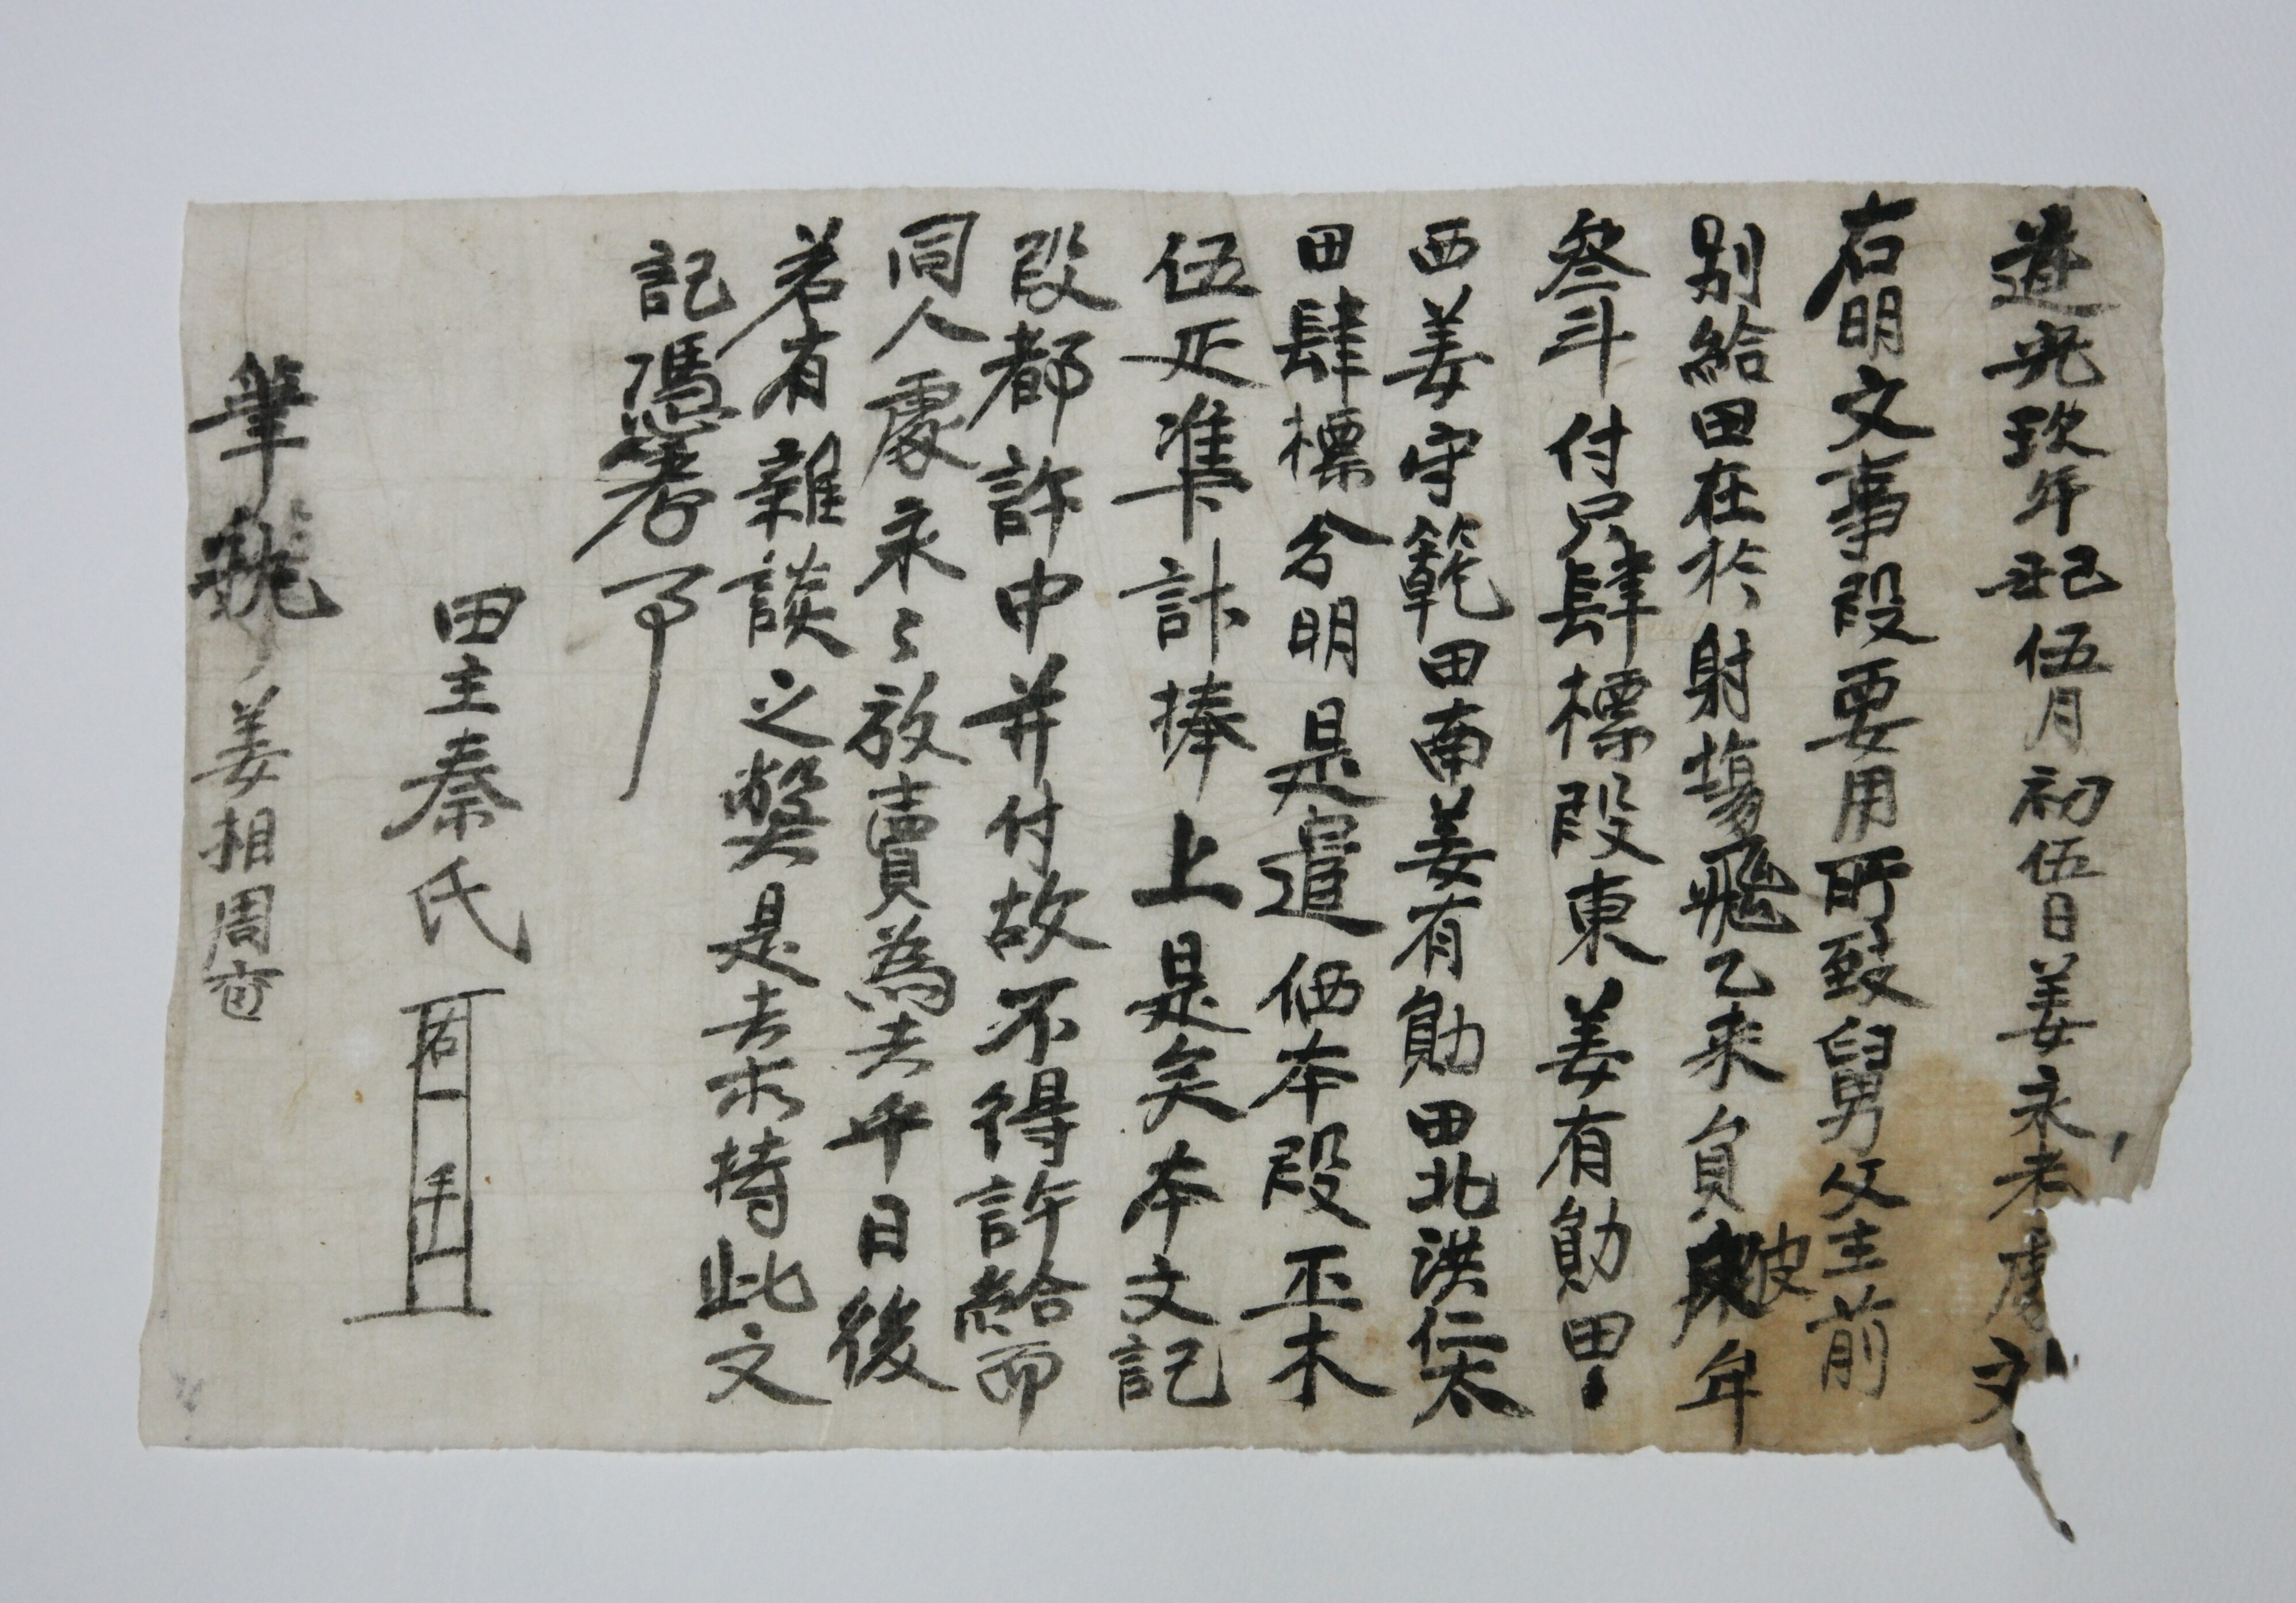 道光玖年己丑伍月初伍日姜永老處文
右明文事段要用所致舅父主前
別給田在於射塲飛乙來負皮牟
叄斗付只肆標段東姜有勛田
西姜守範田南姜有勛田北洪仁太
田肆標分明是遣価本段正木
伍疋準計捧上是矣本文記
段都許中并付故不得許給而
同人處永〻放賣爲去乎日後
若有雜談之弊是去等持此文
記憑考事
田主秦氏 右手
筆執 姜相周